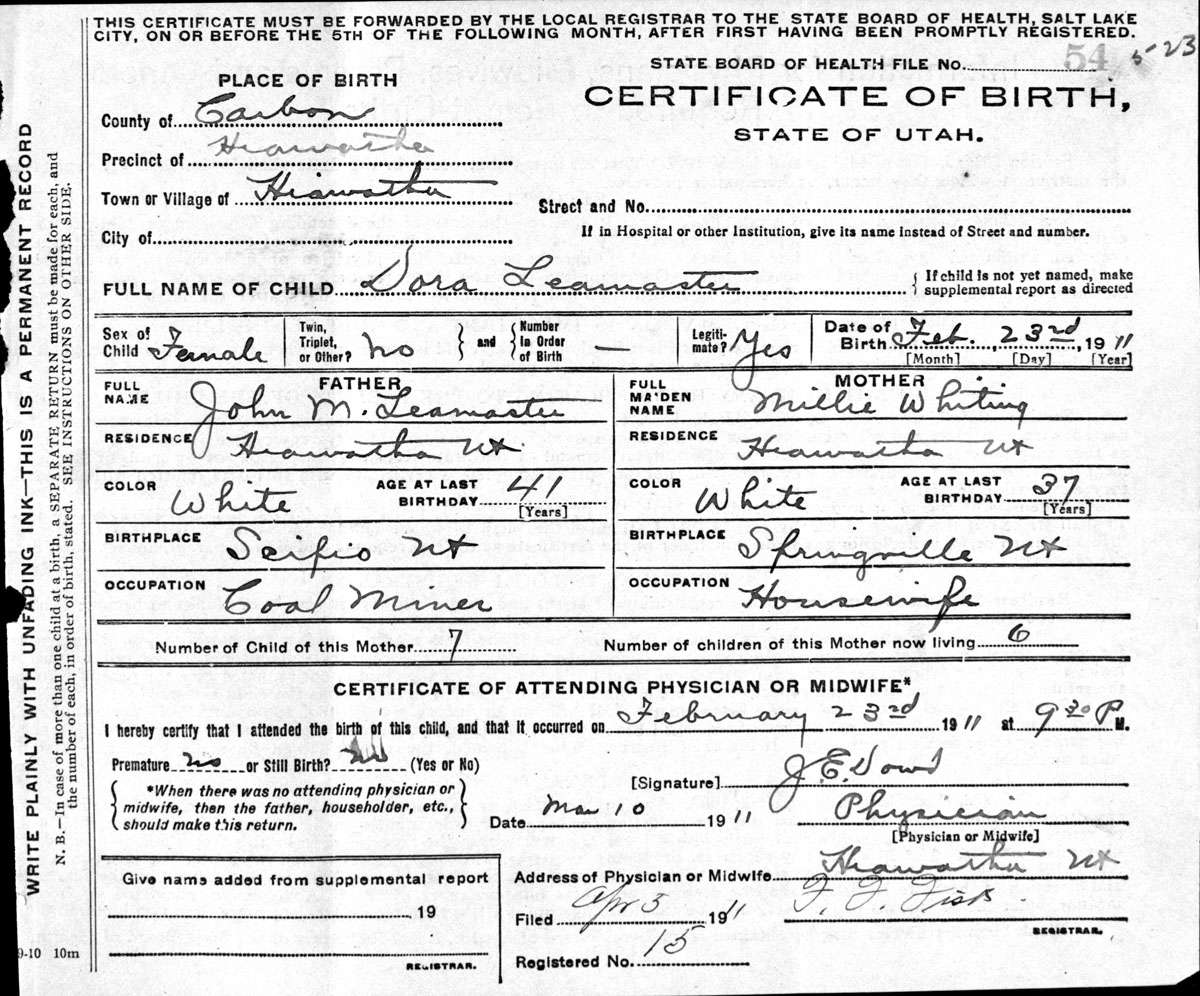 THIS CERTIFICATE MUST BE FORWARDED BY THE LOCAL REGISTRAR TO THE STATE BOARD OF HEALTH, SALT LAKE
CITY, ON OR BEFORE THE 5TH OF THE FOLLOWING MONTH, AFTER FIRST HAVING BEEN PROMPTLY REGISTERED.
STATE BOARD OF HEALTH FILE NO. 54 523
PLACE OF BIRTH
CERTIFICATE OF BIRTH,
STATE OF UTAH.
County of Carbon
Precinct of Hiawatha
Town or Village of Hiawatha
Street and No.
City of
If in Hospital or other Institution, give its name instead of Street and number.
FULL NAME OF CHILD Dora Leamaster { If child is not yet named, make
supplemental report as directed
Sex of Child Female Twin, Triplet, or Other? No and Number in Order of Birth — Legiti-mate? Yes Date of Birth Feb. 23rd 1911
[Month] [Day] [Year]
FATHER
FULL NAME John M. Leamaster
RESIDENCE Hiawatha Ut
COLOR White AGE AT LAST BIRTHDAY 41 [Years]
BIRTHPLACE Scipio Ut
OCCUPATION Coal Miner
MOTHER
FULL MAIDEN NAME Millie Whiting
RESIDENCE Heawatha Ut
COLOR White AGE AT LAST BIRTHDAY 37 [Years]
BIRTHPLACE Springville Ut
OCCUPATION Housewife
Number of Child of this Mother 7 Number of children of this Mother now living 6
CERTIFICATE OF ATTENDING PHYSICIAN OR MIDWIFE*
I hereby certify that I attended the birth of this child, and that it occurred on February 23rd 1911 at 9 30 P M.
Premature no or Still Birth? (Yes or No)
*When there was no attending physician or
midwife, then the father, householder, etc.,
should make this return.
[Signature] J. E. Dowd
Date Mar 10 1911 Physician
[Physician or Midwife]
Give name added from supplemental report
19
REGISTRAR.
Address of Physician or Midwife Hiawatha Ut
Filed Apr 5 1911 F. F. Fisk
REGISTRAR.
Registered No. 15
9-10 10m
WRITE PLAINLY WITH UNFADING INK—THIS IS A PERMANENT RECORD
N. B.—In case of more than one child at a birth, a SEPARATE RETURN must be made for each, and
the number of each, in order of birth, stated. SEE INSTRUCTIONS ON OTHER SIDE.